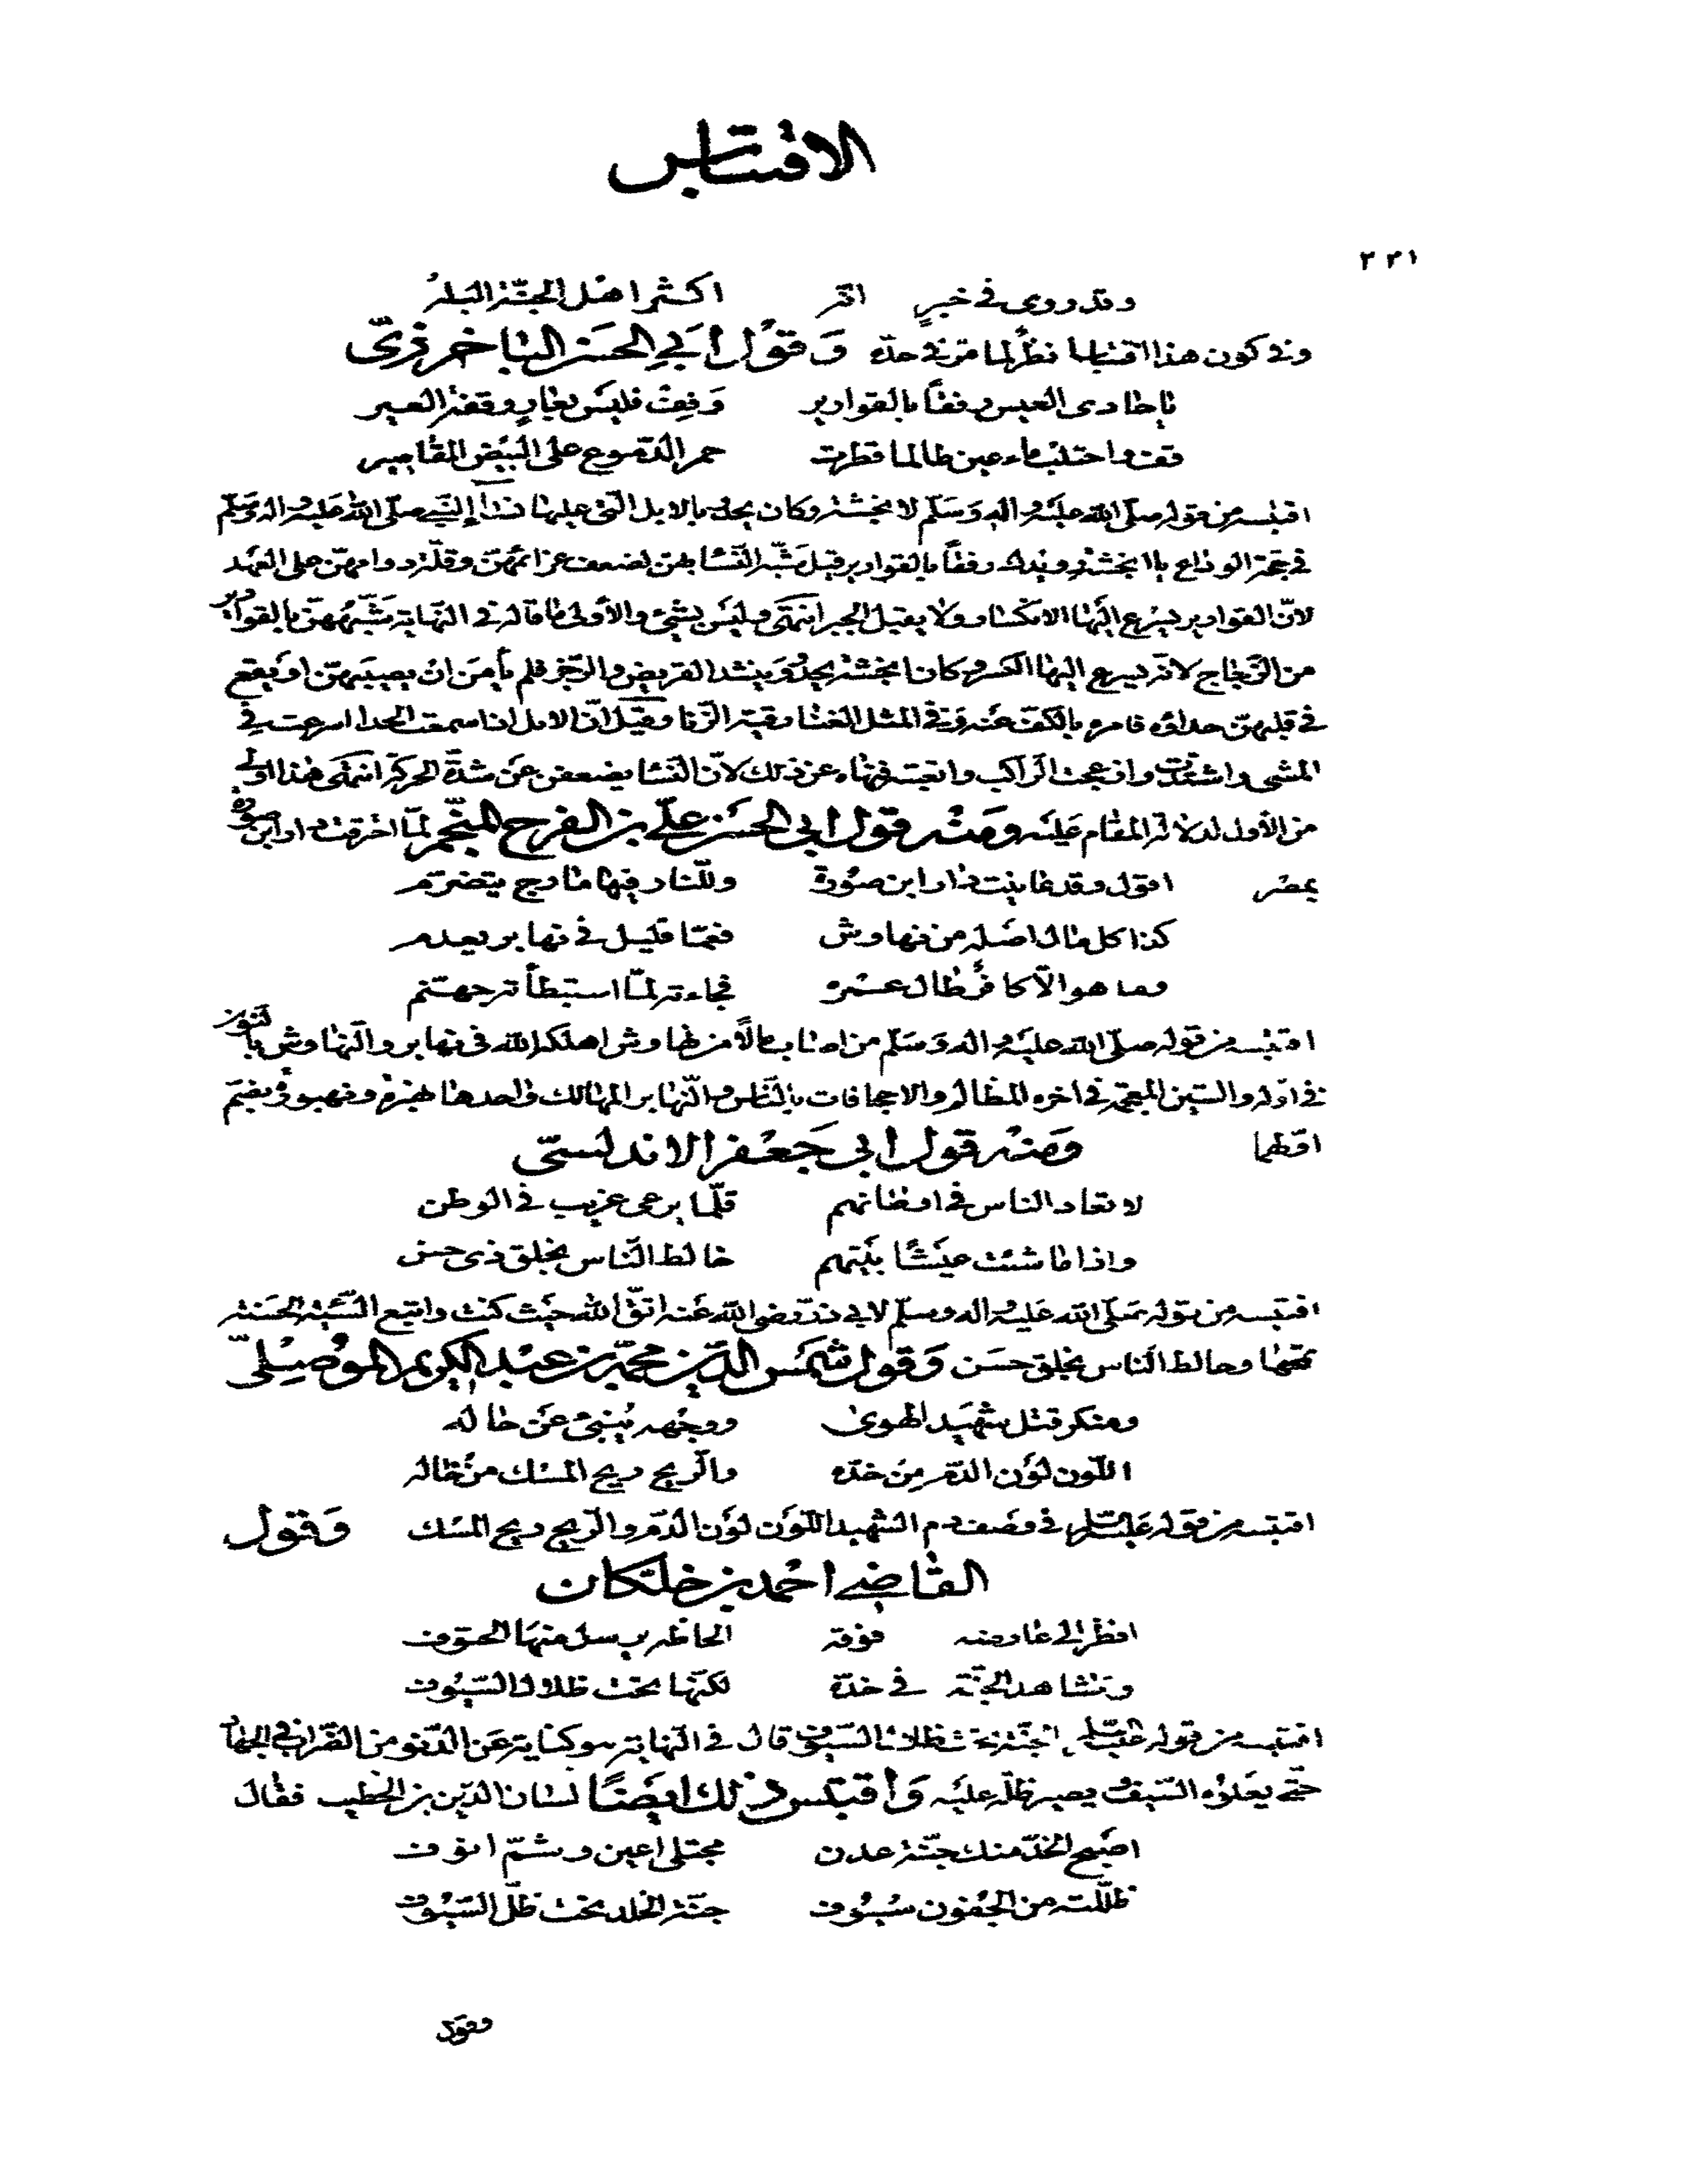 الاقتباس
٢٢١
وقد روى في خبرٍ انّه اكثر اهل الجنّة البله
وفي كون هذا اقتباسا نظر لما مرّ في حدّه وَقوْل ابي الحسَن الباخرزيّ
يا حادى العيس رفقاً بالقوارير وَقِفْ فليسَ بعارٍ وقفة العير
قف واحتلب ماء عين طالما قطرت حمر الدّموع على البيْض المقاصير
اقتبسه من قوله صلّى الله عليْه واله وَسَلّم لانجشة وكان يحدو بالابل الّتى عليها نساء النّبي صلّى الله عَليْه واله وَسَلّم
في حجّة الوداع يا انجشة رويْدك رفقاً بالقوارير قيل شبّه النّساء بهنّ لضعف عزائمهنّ وقلّة دوامهنّ على العَهْد
لانّ القوارير يسْرع إليْها الانكسار ولا يقبل الجبر انتهَى وليْس بشيْء والأولى ما قاله في النّهاية شبّههُنّ بالقوارير
من الزّجاج لانّه يسرع اليها الكسر وكان انجشة يحدُو وَينشد القريض والرّجز فلم يأمَن انْ يصيبَهنّ او يقع
في قلبهنّ حداؤه فامره بالكفّ عنه وَفي المثل الغنَاء رقية الزّنا وقيل انّ الابل اذا سمعت الحداء اسرعت في
المشى واشتدّت وازعجت الرّاكب واتعبته فنهاه عن ذلك لانّ النّساء يضعفن عَن شدّة الحركة انتهَى وهذا اولى
من الأول لدلالة المقام عَليْه ومنْه قول ابى الحسَن علّي بن الفرج المنجّم لمّا احرقت دار ابن صورة
بمصْر اقول وقد عاينت دار ابن صُورة وللنّار فيها مارج يتضرّم
كذا كل مال اصْله من نهاوش فعمّا قليل في نهابر يعدم
وما هو الّا كافرٌ طال عمْره فجاءته لمّا استبطأته جهنّم
اقتبسه من قوله صلّى الله عليْه واله وَسَلّم من اصاب مالاً من نهاوش اهلكه الله في نهابر والنّهاوش بالنّون
في اوّله والشّين المعجمة في اخره المظالم والاجحافات بالنّاس والنّهابر المهالك واحدها نهبرة ونهبورة بضم
اوّلهما وَمنْه قول ابى جَعْفر الاندلسّى
لا تعاد الناس في اوطانهم قلّما يرعى غريب في الوطن
واذا ما شئت عيْشًا بيْنهم خالط النّاس بخلق ذى حسن
اقتبسه من قوله صَلّى الله عَليْه واله وسلّم لابي ذرّ رضى الله عَنه اتّق الله حيْث كنت واتبع السّيّئة الحَسَنة
تمحها وخالط النّاس بخلق حسَن وَقول شمْس الدّين محمّد بن عبْد الكريم الموْصِلّي
ومنكر قتل شهيْد الهوىٰ ووجْهه يُنبئ عَن حاله
اللّون لوْن الدّم مِن خدّه والرّيح ريح المسْك منْ خاله
اقتبسه من قوله عَليْه السّلام في وصْف دم الشّهيد اللّوْن لوْن الدّم والرّيح ريح المسْك وَقول
القاضي احْمد بن خلّكان
انظر الى عارضه فوْقه الحاظه يرسل منهَا الحتوف
وتشاهد الجنّة في خدّه لكنّها تحْت ظلال السّيُوف
اقتبسه من قوله عليْه السّلام الجنّة تحْت ظلال السّيُوف قال في النّهاية هو كناية عَن الدّنو من الضّراب في الجهاد
حتّى يعْلوه السّيْف ويصير ظلّه عليْه وَاقتبس ذلك ايضًا لسَان الدّين بن الخطيب فقال
اصْبح الخدّ منك جنّة عدن مجتلى اعين وشمّ انوف
ظلّلته من الجفون سُيُوف جنّة الخلد تحْت ظلّ السّيُوف
وقول